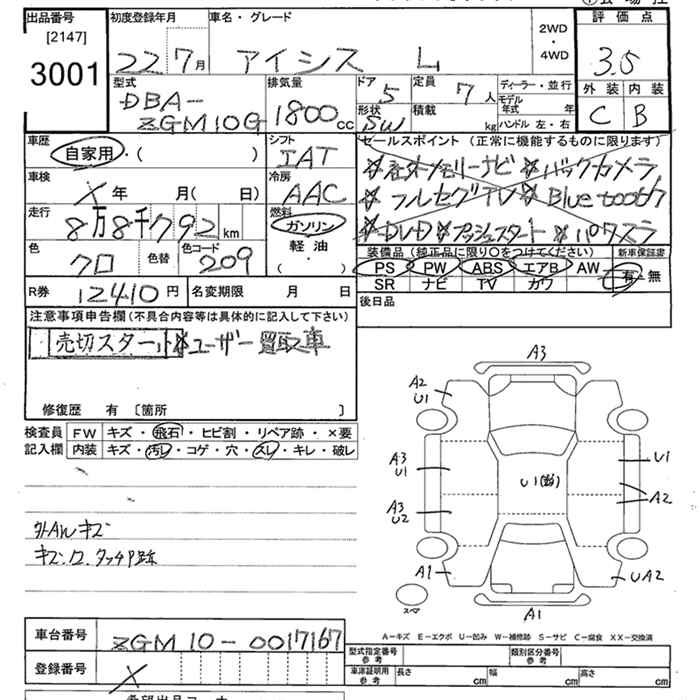 出品番号
[2147]
3001
初度登録年月
22 7月
車名・グレード
アイシス L
2WD
・
4WD
評価点
3.5
外装 内装
C B
型式
DBA-
ZGM10G
排気量
1800cc
ドア
5
形状
SW
定員
7人
積載
kg
ディーラー・並行
モデル
年式 年
ハンドル 左・右
車歴
自家用・( )
シフト
IAT
車検
X年 月( 日)
冷房
AAC
走行
8万8千792km
燃料
ガソリン
軽油
( ・ )
色
クロ
色替
色コード
209
セールスポイント (正常に機能するものに限ります)
*社外メモリーナビ *バックカメラ
*フルセグTV *Bluetooth
*DVD *プッシュスタート *パワスラ
装備品 (純正品に限り○をつけてください)
新車保証書
PS PW ABS エアB AW
SR ナビ TV カワ
有・無
後日品
R券 12410円
名変期限 月 日
注意事項申告欄(不具合内容等は具体的に記入して下さい)
売切スタート *ユーザー買取車
修復歴 有 〔箇所 〕
検査員
記入欄
FW キズ・飛石・ヒビ割・リペア跡・×要
内装 キズ・汚レ・コゲ・穴・スレ・キレ・破レ
外AWキズ
キズ.ワ.タッチP跡
A3
A2
U1
A3
U1
U1(跡)
U1
A2
A3
U2
A1
UA2
スペア
A1
A-キズ E-エクボ U-凹み W-補修跡 S-サビ C-腐食 XX-交換済
車台番号
ZGM10-0017167
登録番号
X
型式指定番号
参考
類別区分番号
参考
車庫証明用
参考
長さ cm
幅 cm
高さ cm